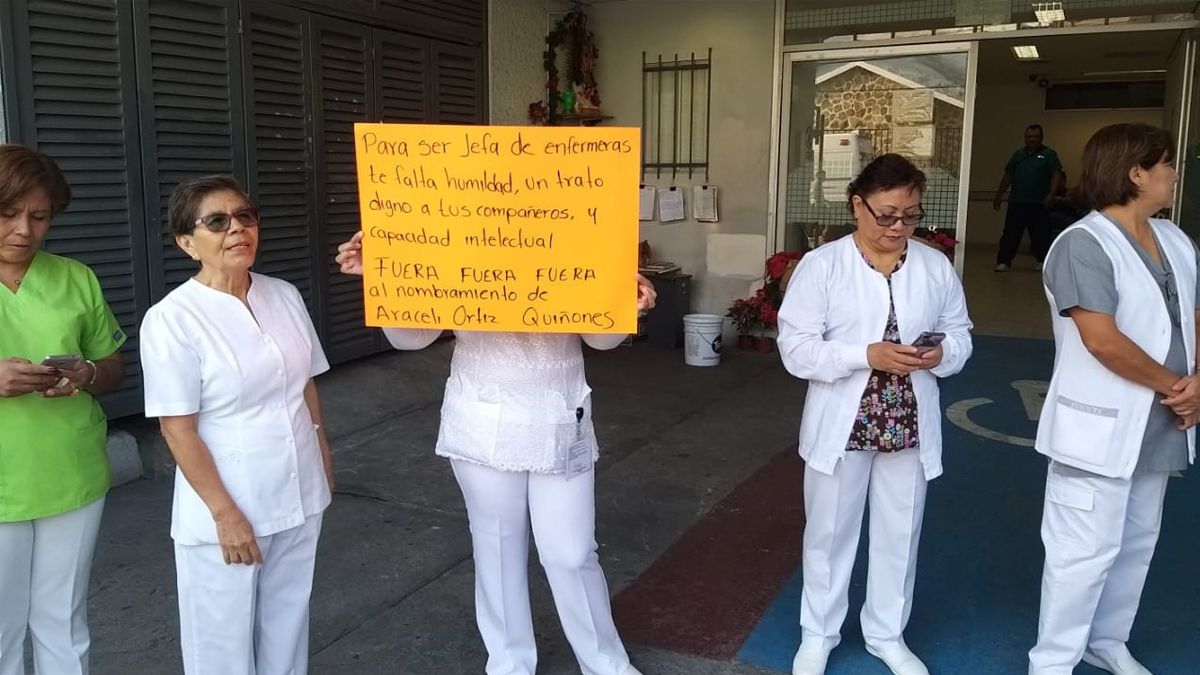 Para ser Jefa de enfermeras
te falta humildad, un trato
digno a tus compañeros, y
capacidad intelectual
FUERA FUERA FUERA
al nombramiento de
Araceli Ortiz Quiñones